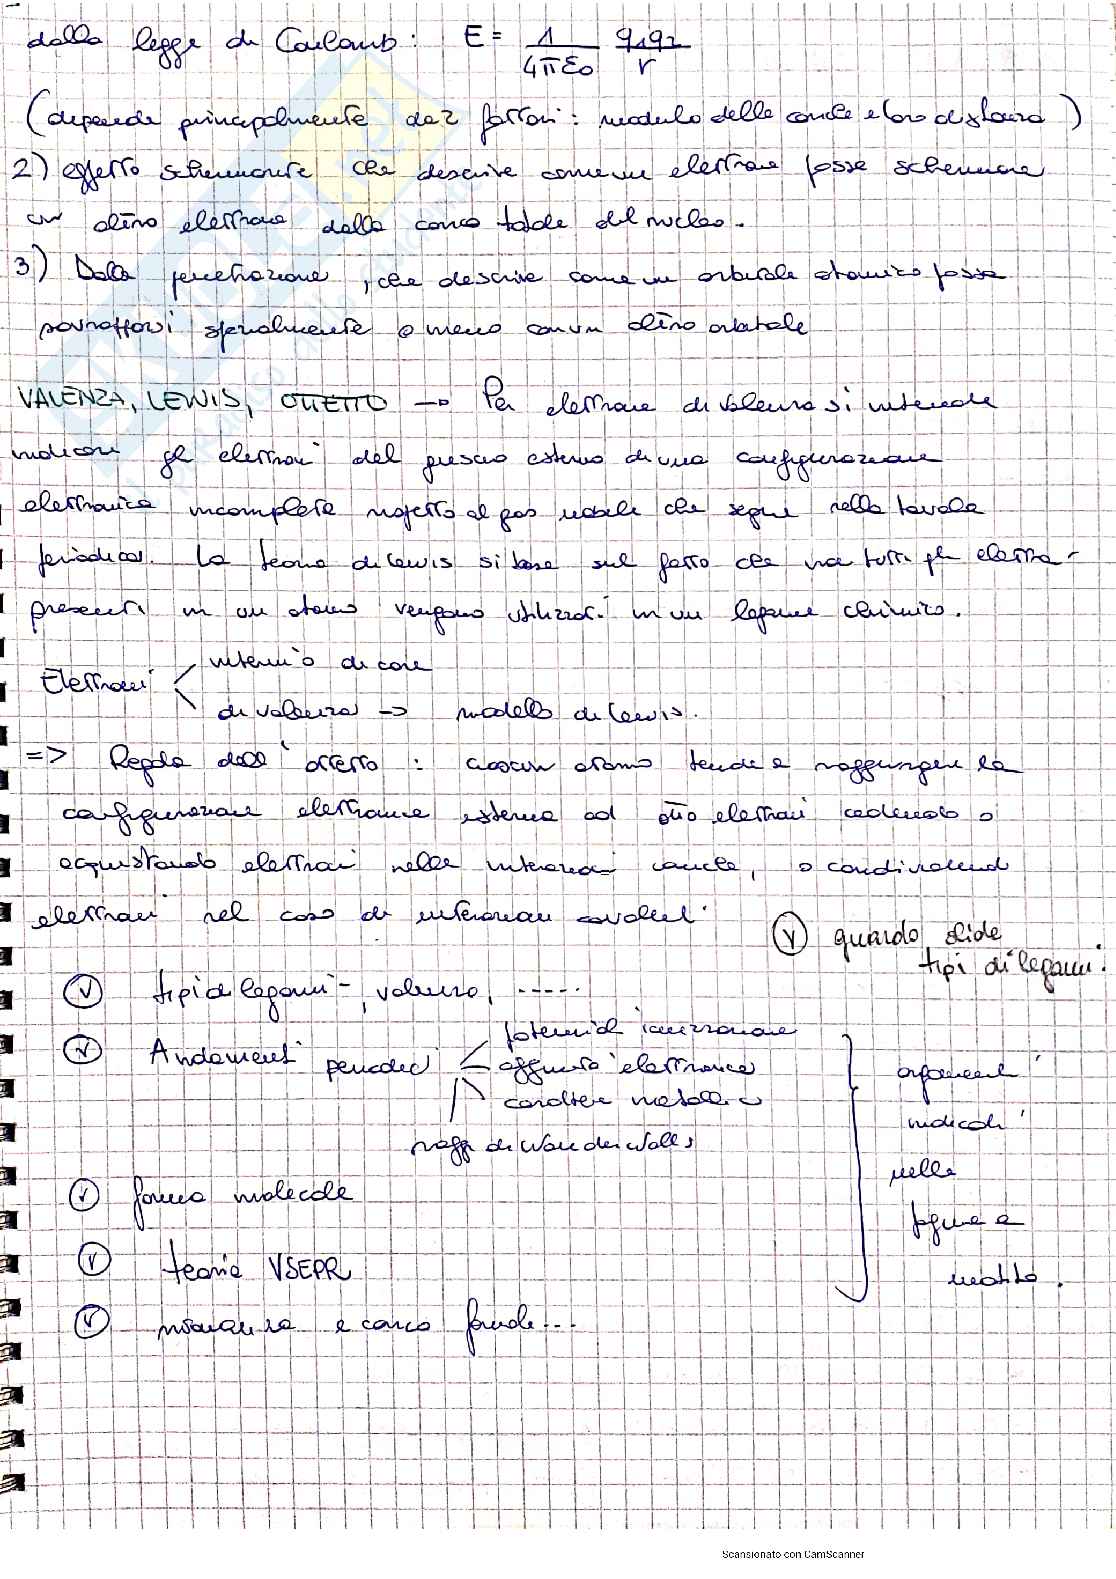 dalla legge di Coulomb: E = 1/4πε₀ q₁q₂/r
(dipende principalmente da 2 fattori: modulo delle cariche e loro distanza)
2) effetto schermante che descrive come un elettrone possa schermare
un altro elettrone dalla carica totale del nucleo.
3) Dalla penetrazione, che descrive come un orbitale atomico possa
sovrapporsi spazialmente o meno con un altro orbitale
VALENZA, LEWIS, OTTETTO → Per elettrone di valenza si intende
indicare gli elettroni del guscio esterno di una configurazione
elettronica incompleta rispetto al gas nobile che segue nella tavola
periodica. La teoria di Lewis si basa sul fatto che non tutti gli elettroni
presenti in un atomo vengono utilizzati in un legame chimico.
Elettroni
interni o di core
di valenza → modello di Lewis.
=> Regola dell'ottetto: ciascun atomo tende a raggiungere la
configurazione elettronica esterna ad otto elettroni cedendo o
acquistando elettroni nelle interazioni ioniche, o condividendo
elettroni nel caso di interazioni covalenti
V guardo slide
tipi di legami.
V tipi di legami, valenza, .....
V Andamenti periodici
potenziale ionizzazione
affinità elettronica
carattere metallico
raggi di Van der Walls
argomenti
indicati
nelle
pagine a
V forma molecole
V teoria VSEPR
V risonanza e carica formale...
Scansionato con CamScanner